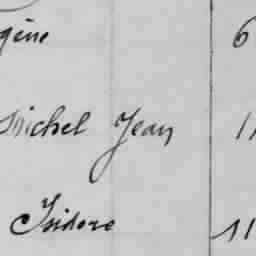 gène 6
Michel Jean 11
Isidore 11